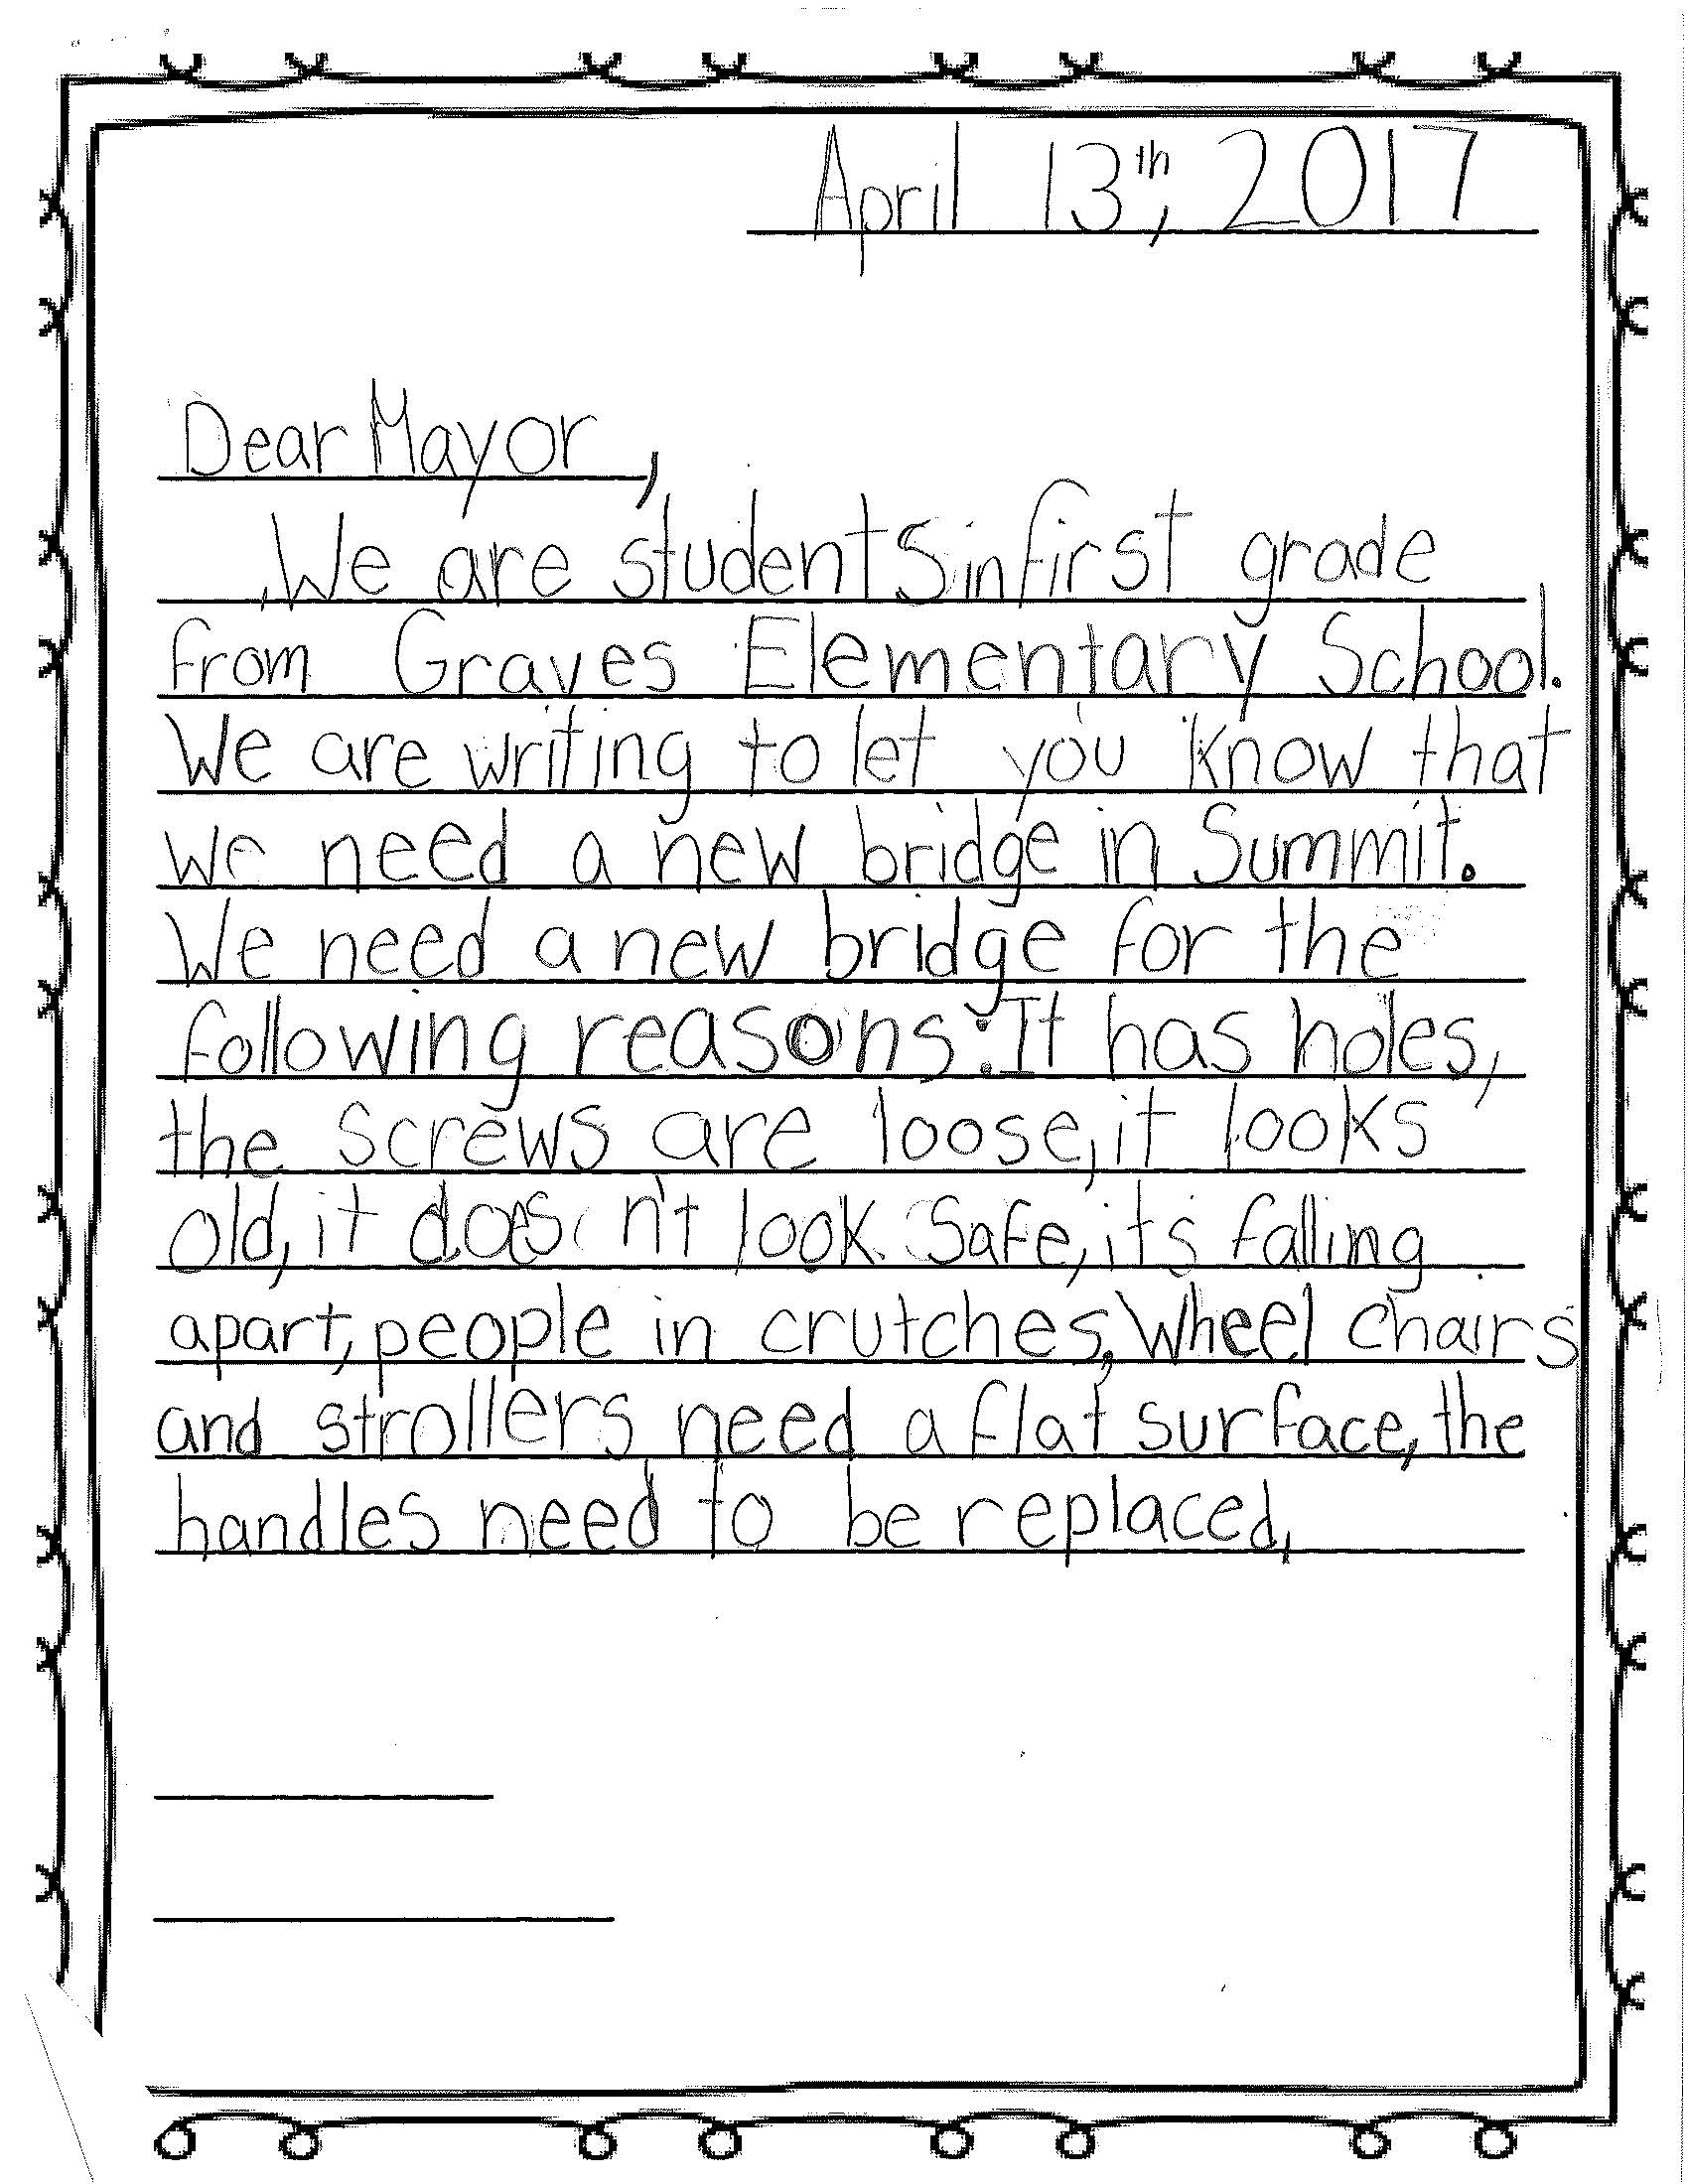 April 13th, 2017
Dear Mayor,
We are students in first grade
from Graves Elementary School.
We are writing to let you know that
we need a new bridge in Summit.
We need a new bridge for the
following reasons: It has holes,
the screws are loose, it looks
old, it doesn't look safe, it's falling
apart, people in crutches, wheel chairs
and strollers need a flat surface, the
handles need to be replaced,